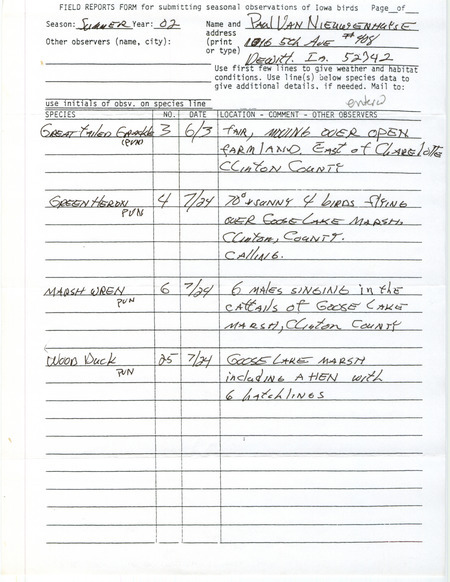 FIELD REPORTS FORM for submitting seasonal observations of Iowa birds Page__of__
Season: Summer Year: 02 Name and PAUL VAN NIEUWENHUYSE
address
Other observers (name, city): (print 1016 5th Ave #408
or type) DeWitt, Ia. 52742
Use first few lines to give weather and habitat
conditions. Use line(s) below species data to
give additional details. if needed. Mail to:
entered
use initials of obsv. on species line
SPECIES NO. DATE LOCATION - COMMENT - OTHER OBSERVERS
Great tailed Grackle 3 6/3 fair, moving over open
(PVN) farmland. East of Charlotte
Clinton County
Green Heron 4 7/24 70° & sunny 4 birds flying
PVN over Goose Lake Marsh.
Clinton, County.
calling.
Marsh Wren 6 7/24 6 males singing in the
PVN cattails of Goose Lake
Marsh, Clinton County
Wood Duck 25 7/24 Goose Lake Marsh
PVN including A Hen with
6 hatchlings